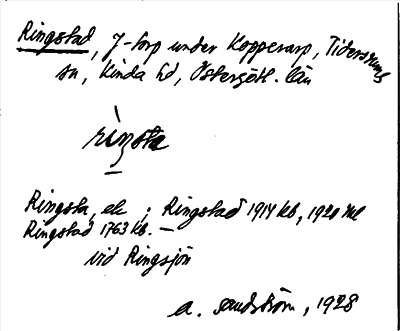 Ringstad, f-torp under Kopperarp, Tidersrums
sn, Kinda hd, Östergötl. län
ringsta
Ringsta, ek ; Ringstad 1914 kb, 1920 ml
Ringstad 1763 kb. —
vid Ringsjön
A. Sandström, 1928